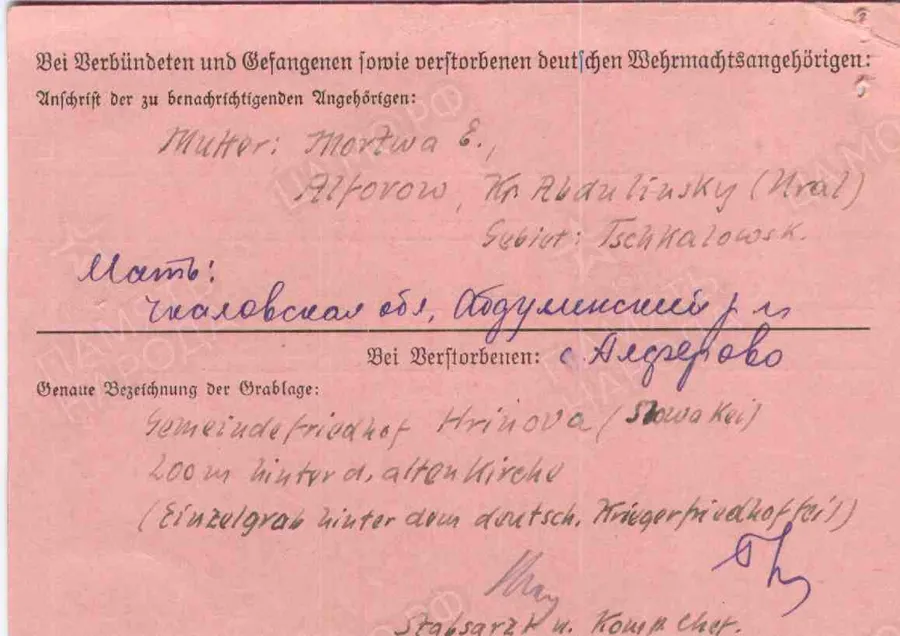 Bei Verbündeten und Gefangenen sowie verstorbenen deutschen Wehrmachtsangehörigen:
Anschrift der zu benachrichtigenden Angehörigen:
Mutter: Mortwa E.,
Alforow, Kr. Abdulinsky (Ural)
Gebiet: Tschkalowsk.
Мать:
Чкаловская обл, Абдулинский р-н
Bei Verstorbenen: с. Алферово
Genaue Bezeichnung der Grablage:
Gemeindefriedhof Hrinova (Slowakei)
200 m hinter d. alten Kirche
(Einzelgrab hinter dem deutsch. Kriegerfriedhofteil)
Stabsarzt u. Komp. Chef.